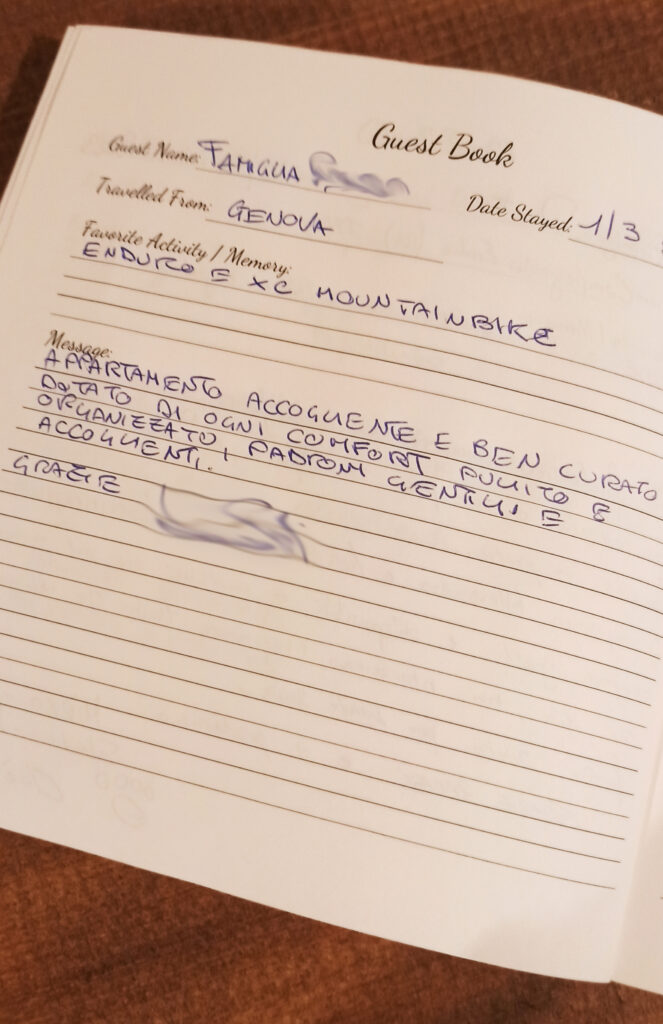 Guest Book
Guest Name: FAMIGLIA
Date Stayed: 1/3
Travelled From: GENOVA
Favorite Activity / Memory:
ENDURO E XC MOUNTAINBIKE
Message:
APPARTAMENTO ACCOGLIENTE E BEN CURATO
DOTATO DI OGNI COMFORT PULITO E
ORGANIZZATO, I PADRONI GENTILI E
ACCOGLIENTI.
GRAZIE